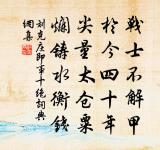 戰士不解甲
於今四十年
尖量太倉粟
爛鑄水衡錢
刘克庄即事十绝詞典
網集